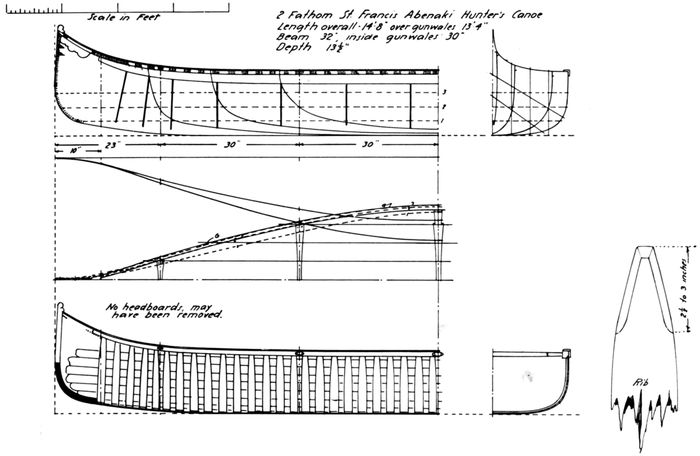 Scale in Feet
2 Fathom St. Francis Abenaki Hunter's Canoe
Length overall-14'8" over gunwales 13'4"
Beam 32", inside gunwales 30"
Depth 13½"
3
2
1
10"
23"
30"
30"
No headboards, may
have been removed.
2½ to 3 inches
Rib